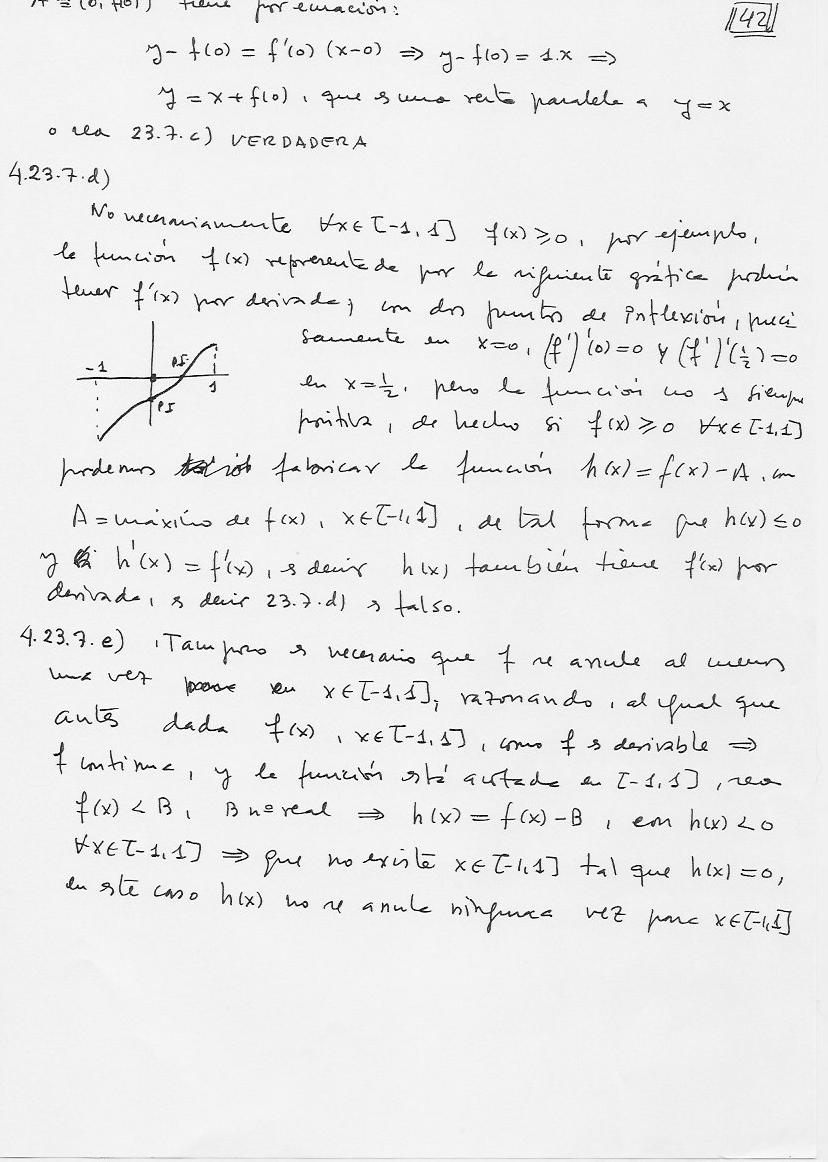 A ≡ (0, f(0)) tiene por ecuación:
42
y - f(0) = f'(0) (x-0) ⇒ y - f(0) = 1.x ⇒
y = x + f(0), que es una recta paralela a y = x
o sea 23.7.c) VERDADERA
4.23.7.d)
No necesariamente ∀x∈[-1,1] f(x) ≥ 0, por ejemplo,
la función f(x) representada por la siguiente gráfica podría
tener f'(x) por derivada, con dos puntos de inflexión, preci
samente en x=0, (f')'(0)=0 y (f')'(1/2)=0
-1
P.I.
1
P.I
en x=1/2, pero la función no es siempre
positiva, de hecho si f(x) ≥ 0 ∀x∈[-1,1]
podemos fabricar la función h(x) = f(x) - A, con
A = máximo de f(x), x∈[-1,1], de tal forma que h(x) ≤ 0
y h'(x) = f'(x), es decir h(x) también tiene f'(x) por
derivada, es decir 23.7.d) es falso.
4.23.7.e) Tampoco es necesario que f se anule al menos
una vez en x∈[-1,1], razonando, al igual que
antes dada f(x), x∈[-1,1], como f es derivable ⇒
f continua, y la función está acotada en [-1,1], sea
f(x) < B, B nº real ⇒ h(x) = f(x) - B, con h(x) < 0
∀x∈[-1,1] ⇒ que no existe x∈[-1,1] tal que h(x) = 0,
en este caso h(x) no se anula ninguna vez para x∈[-1,1]